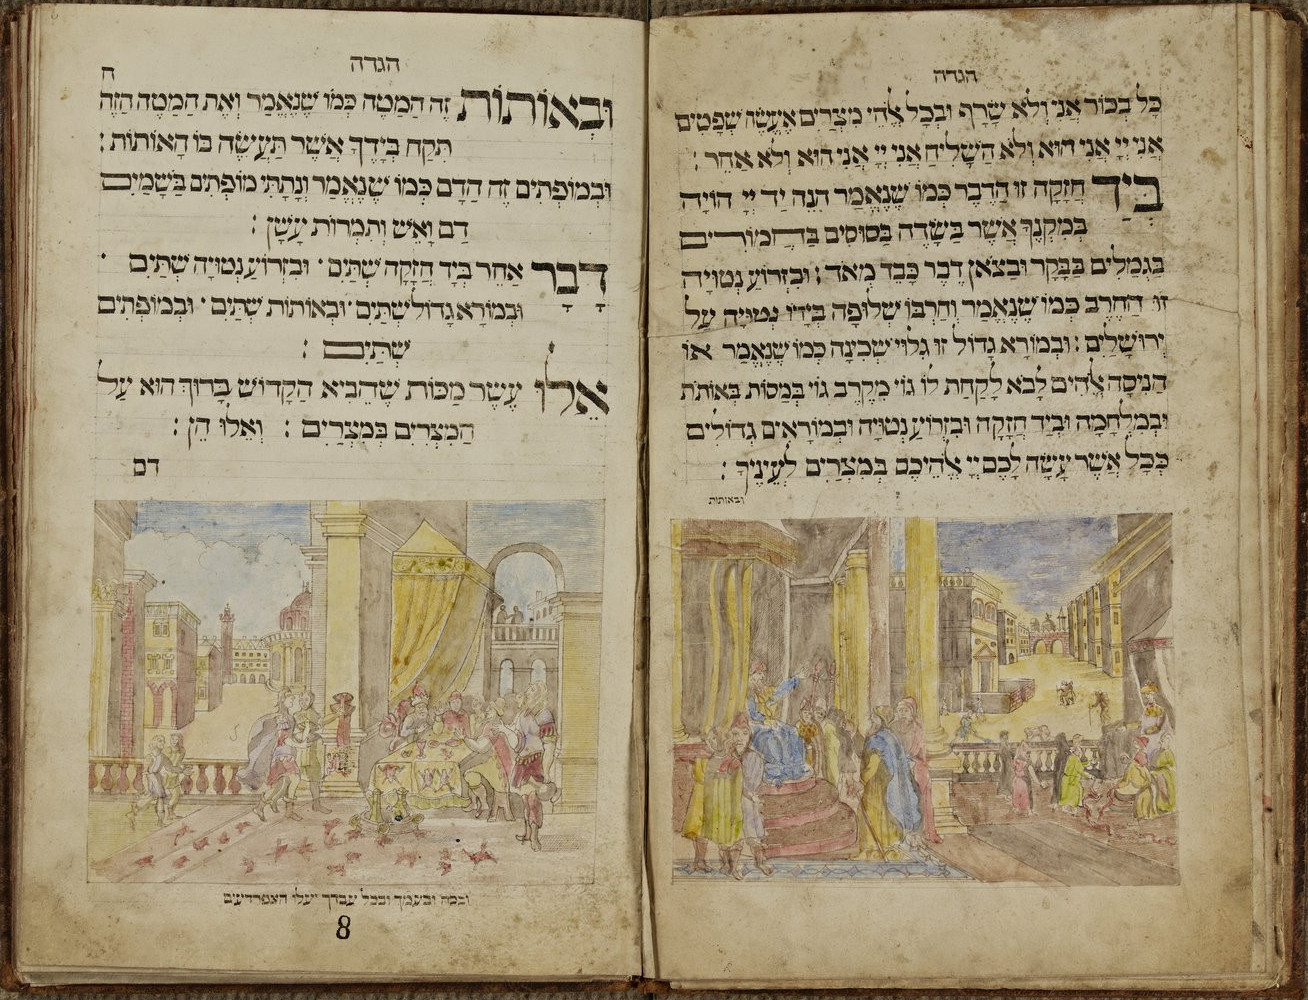 הגדה
כׇּל בְּכוֹר אֲנִי וְלֹא שָׂרָף וּבְכׇל אֱלֹהֵי מִצְרַיִם אֶעֱשֶׂה שְׁפָטִים
אֲנִי יְיָ אֲנִי הוּא וְלֹא הַשָּׁלִיחַ אֲנִי יְיָ אֲנִי הוּא וְלֹא אַחֵר :
בְּיַד חֲזָקָה זוֹ הַדֶּבֶר כְּמוֹ שֶׁנֶּאֱמַר הִנֵּה יַד יְיָ הוֹיָה
בְּמִקְנְךָ אֲשֶׁר בַּשָּׂדֶה בַּסּוּסִים בַּחֲמוֹרִים
בַּגְּמַלִּים בַּבָּקָר וּבַצֹּאן דֶּבֶר כָּבֵד מְאֹד : וּבִזְרוֹעַ נְטוּיָה
זוֹ הַחֶרֶב כְּמוֹ שֶׁנֶּאֱמַר וְחַרְבּוֹ שְׁלוּפָה בְּיָדוֹ נְטוּיָה עַל
יְרוּשָׁלַיִם : וּבְמוֹרָא גָדוֹל זוֹ גִלּוּי שְׁכִינָה כְּמוֹ שֶׁנֶּאֱמַר אוֹ
הֲנִיסָה אֱלֹהִים לָבֹא לָקַחַת לוֹ גוֹי מִקֶּרֶב גּוֹי בְּמַסּוֹת בְּאוֹתֹת
וּבְמִלְחָמָה וּבְיַד חֲזָקָה וּבִזְרוֹעַ נְטוּיָה וּבְמוֹרָאִים גְּדוֹלִים
כְּכׇל אֲשֶׁר עָשָׂה לָכֶם יְיָ אֱלֹהֵיכֶם בְּמִצְרַיִם לְעֵינֶיךָ :
ובאותות
הגדה
ח
וּבְאוֹתוֹת זֶה הַמַּטֶּה כְּמוֹ שֶׁנֶּאֱמַר וְאֶת הַמַּטֶּה הַזֶּה
תִּקַּח בְּיָדֶךָ אֲשֶׁר תַּעֲשֶׂה בּוֹ הָאוֹתוֹת :
וּבְמוֹפְתִים זֶה הַדָּם כְּמוֹ שֶׁנֶּאֱמַר וְנָתַתִּי מוֹפְתִים בַּשָּׁמַיִם
דָּם וָאֵשׁ וְתִמְרוֹת עָשָׁן :
דָּבָר אַחֵר בְּיָד חֲזָקָה שְׁתַּיִם · וּבִזְרוֹעַ נְטוּיָה שְׁתַּיִם ·
וּבְמוֹרָא גָדוֹל שְׁתַּיִם · וּבְאוֹתוֹת שְׁתַּיִם · וּבְמוֹפְתִים
שְׁתַּיִם :
אֵלּוּ עֶשֶׂר מַכּוֹת שֶׁהֵבִיא הַקָּדוֹשׁ בָּרוּךְ הוּא עַל
הַמִּצְרִים בְּמִצְרַיִם : וְאֵלּוּ הֵן :
דם
ובכה ובעמך ובכל עבדך יעלו הצפרדעים
8